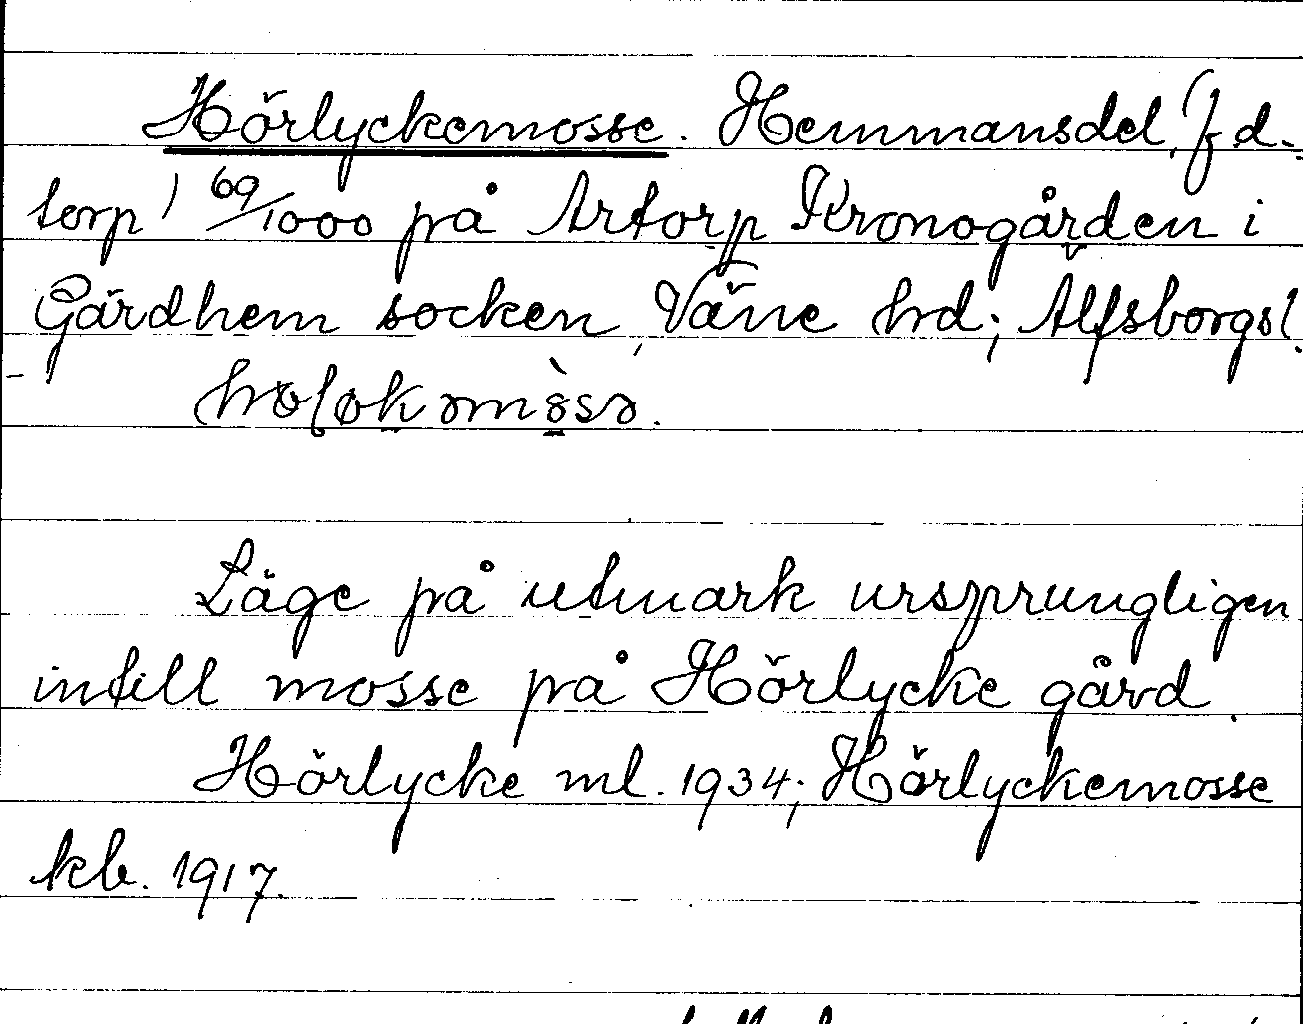 Hörlyckemosse. Hemmansdel, (f d.
torp) 69/1000 på Artorp Kronogården i
Gärdhem socken, Väne hrd; Älfsborgs l.
Läge på utmark ursprungligen
intill mosse på Hörlycke gård.
Hörlycke ml. 1934; Hörlyckemosse
kb. 1917.